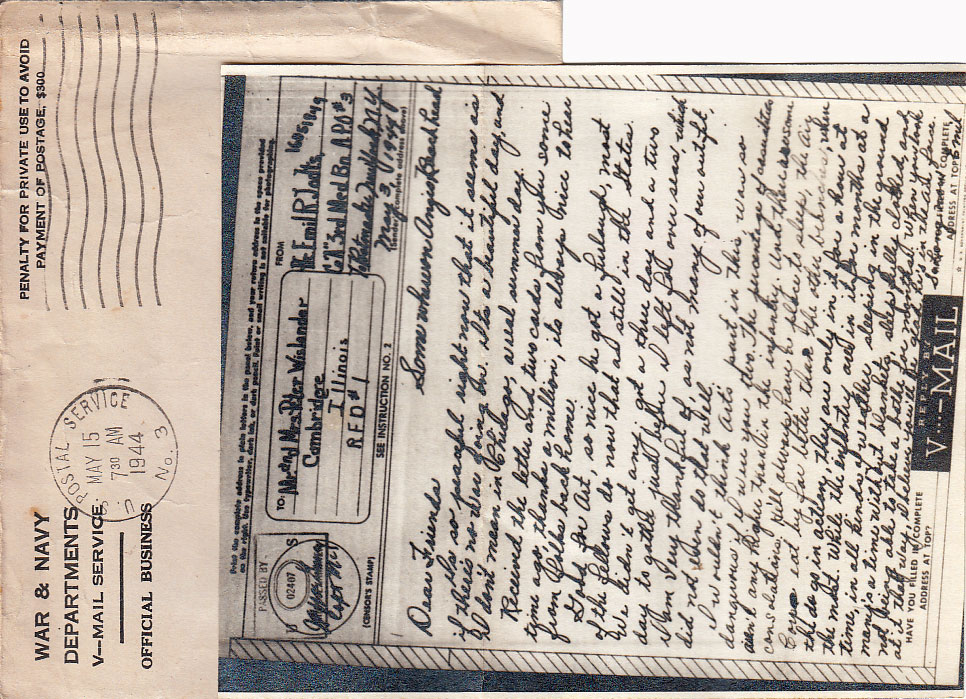 WAR & NAVY
DEPARTMENTS
V—MAIL SERVICE
OFFICIAL BUSINESS
U.S. POSTAL SERVICE
MAY 15
730 AM
1944
No. 3
PENALTY FOR PRIVATE USE TO AVOID
PAYMENT OF POSTAGE, $300
Print the complete address in plain letters in the panel below, and your return address in the space provided
on the right. Use typewriter, dark ink, or dark pencil. Faint or small writing is not suitable for photographing.
PASSED BY
U S
02407
Capt
(CENSOR'S STAMP)
TO:
Mr. and Mrs. Peter Wislander
Cambridge
Illinois
RFD #1
SEE INSTRUCTION NO. 2
FROM
Emil R.
Co "A" 3rd Med Bn APO #3
% Postmaster New York N.Y.
May 3, 1944
(Sender's complete address above)
Somewhere on Anzio Beachhead
Dear Friends
if it's so peaceful right now that it seems as
if there's no war going on. It's a beautiful day, and
I don't mean in Chicago, a real summer day.
Received the letter and two cards from you some
time ago, thanks a million, its always nice to hear
from folks back home.
is so nice he got a furlough, most
of the fellows do now that are still in the States.
We didn't get any, I got a three day and a two
day to gather just before I left
I am very thankful for as not many of our outfit,
did not even do that well.
I wouldn't think Art's part in this war is so
dangerous if I were you two. The percentage of casualties
alright, than in the infantry. And there is some
consolation, he'll always have a place to sleep, the air
Corps is by far better than the other branches, when
they do go in action, they are only in it for a hour at
the most. While the infantry are in it for months at a
time, in all kinds of weather sleeping in the ground
many's a time without blankets, sleep fully clothed, and
not being able to take a bath for months. When you look
at it that way, I believe you'll be glad he's in the air force.
HAVE YOU FILLED IN COMPLETE
ADDRESS AT TOP?
REPLY BY
V···—MAIL
COMPLETE
ADDRESS AT TOP?